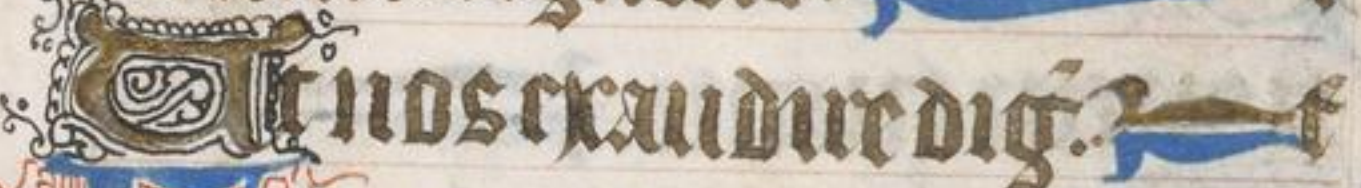 Ut nos exaudire dig̅. t